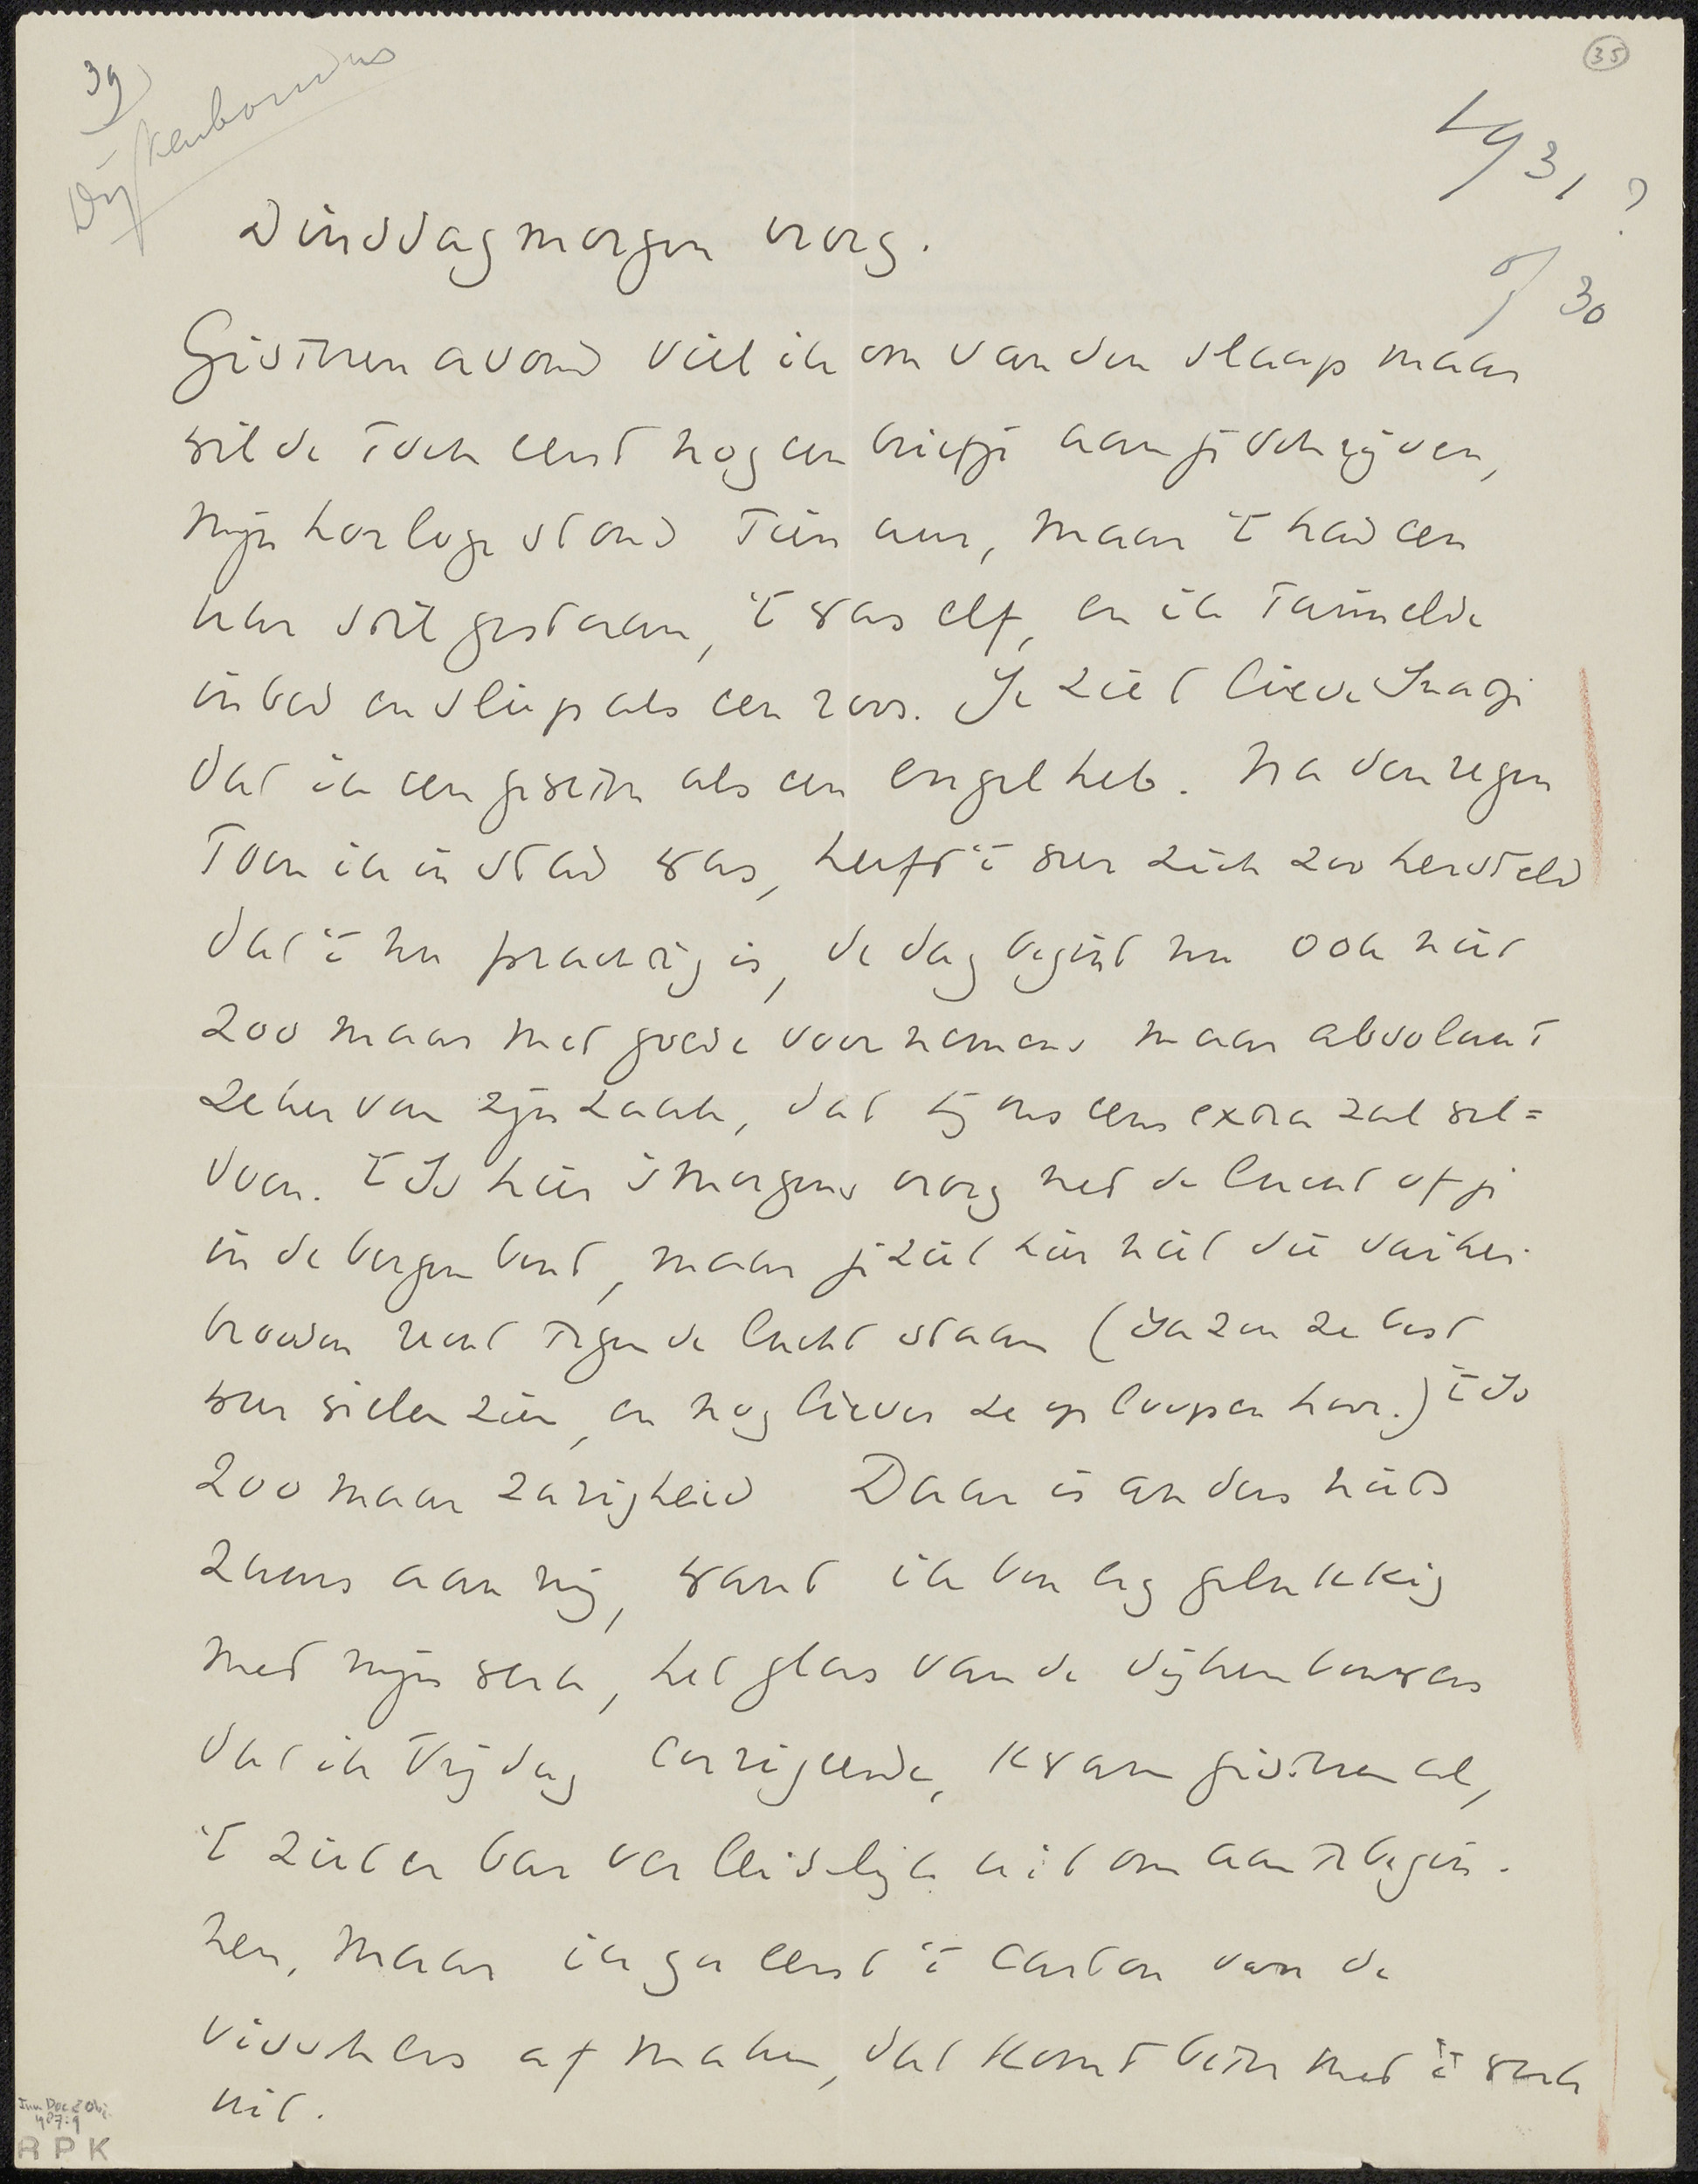 39
Dijkenbouwers
35
1931?
of 30
Dinsdagmorgen vroeg.
Gisteren avond viel ik om van den slaap maar
wilde toch eerst nog een briefje aan je schrijven,
mijn horloge stond tien uur, maar 't had een
uur stil gestaan, 't was elf, en ik tuimelde
in bed en sliep als een roos. Je ziet lieve Snagi
dat ik een geweten als een engel heb. Na den regen
toen ik in stad was, heeft 't weer zich zoo hersteld
dat 't nu prachtig is, de dag begint nu ook niet
zoo maar met goede voornemens maar absoluut
zeker van zijn zaak, dat hij ons eens extra zal wel=
doen. 't Is hier 's morgens vroeg net de lucht of je
in de bergen bent, maar je ziet hier niet die
brooden recht tegen de lucht staan (ja zou ze best
weer willen zien, en nog liever ze op loopen hoor.) 't Is
zoo maar zachtigheid Daar is anders niets
zuurs aan mij, want ik ben erg gelukkig
met mijn werk, het glas van de dijkenbouwers
dat ik Vrijdag corrigeerde, kwam gisteren al,
't ziet er bar verleidelijk uit om aan te begin-
nen, maar ik ga eerst 't carton van de
visschers af maken, dat komt beter met 't werk
uit.
Inv Doc & Obj.
487:9
RPK